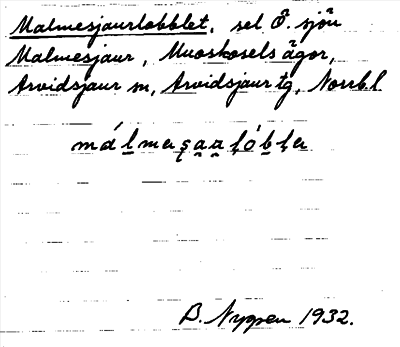 Malmesjaurlobblet, sel Ö. sjön
Malmesjaur, Muoskosels ägor,
Arvidsjaur sn, Arvidsjaur tg, Norrb. l
málmasaalóbla
B. Nygren 1932.